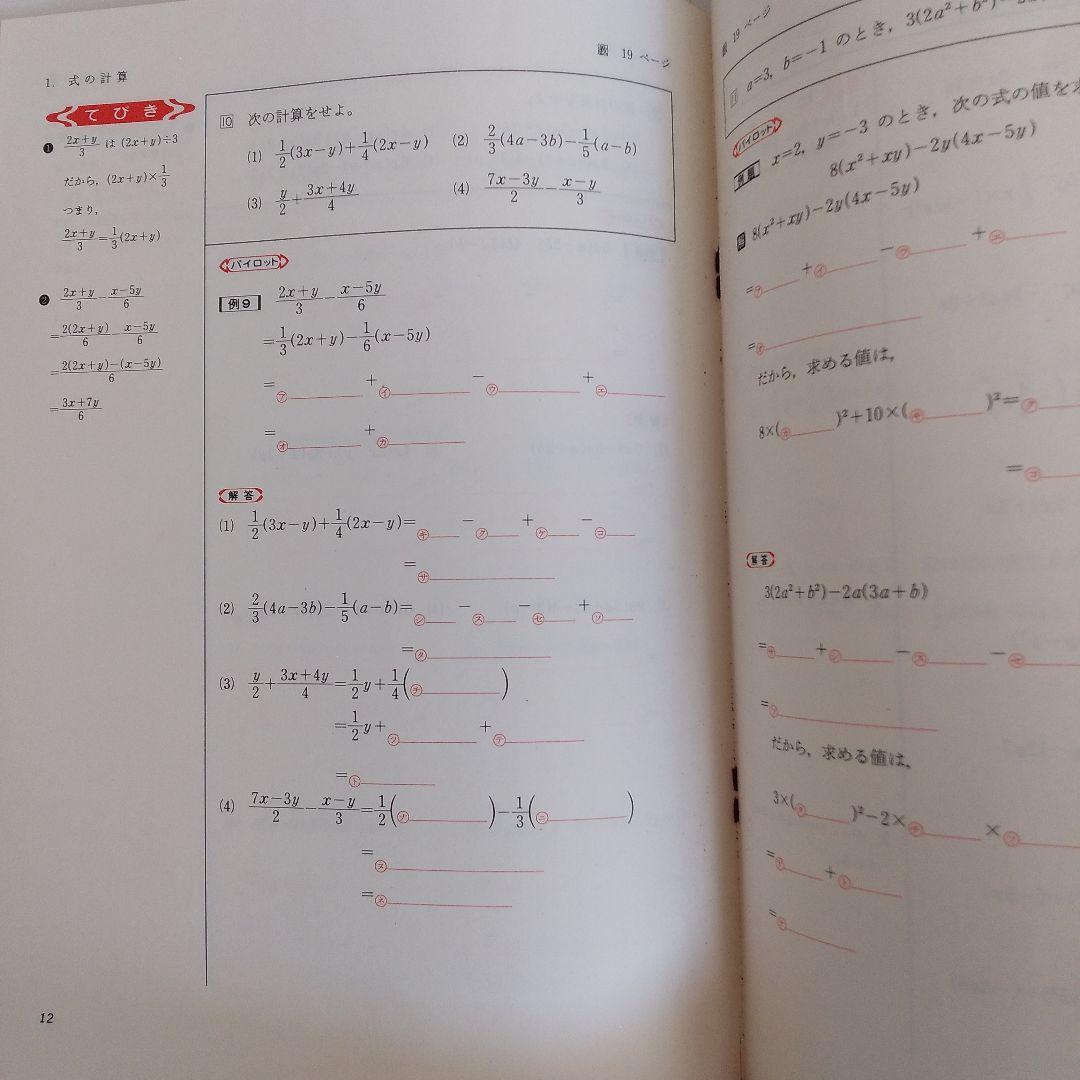 1. 式の計算
てびき
❶ (2x+y)/3 は (2x+y)÷3
だから, (2x+y)×1/3
つまり,
(2x+y)/3=1/3(2x+y)
❷ (2x+y)/3−(x−5y)/6
=2(2x+y)/6−(x−5y)/6
=(2(2x+y)−(x−5y))/6
=(3x+7y)/6
19 ページ
10 次の計算をせよ。
(1) 1/2(3x−y)+1/4(2x−y) (2) 2/3(4a−3b)−1/5(a−b)
(3) y/2+(3x+4y)/4 (4) (7x−3y)/2−(x−y)/3
パイロット
例9 (2x+y)/3−(x−5y)/6
=1/3(2x+y)−1/6(x−5y)
=㋐+㋑−㋒+㋓
=㋔+㋕
解答
(1) 1/2(3x−y)+1/4(2x−y)=㋖−㋗+㋘−㋙
=㋚
(2) 2/3(4a−3b)−1/5(a−b)=㋛−㋜−㋝+㋞
=㋟
(3) y/2+(3x+4y)/4=1/2y+1/4(㋠)
=1/2y+㋡+㋢
=㋣
(4) (7x−3y)/2−(x−y)/3=1/2(㋤)−1/3(㋥)
=㋦
=㋧
12
19 ページ
11 a=3, b=−1 のとき, 3(2a²+b²)−
パイロット
例題 x=2, y=−3 のとき, 次の式の値を求
8(x²+xy)−2y(4x−5y)
8(x²+xy)−2y(4x−5y)
=㋐+㋑−㋒+㋓
=㋔
だから, 求める値は,
8×(㋕)²+10×(㋖)²=㋗
=㋙
解答
3(2a²+b²)−2a(3a+b)
=㋚+㋛−㋜−㋝
=㋞
だから, 求める値は,
3×(㋟)²−2×㋠×㋡
=㋢+㋣
=㋤